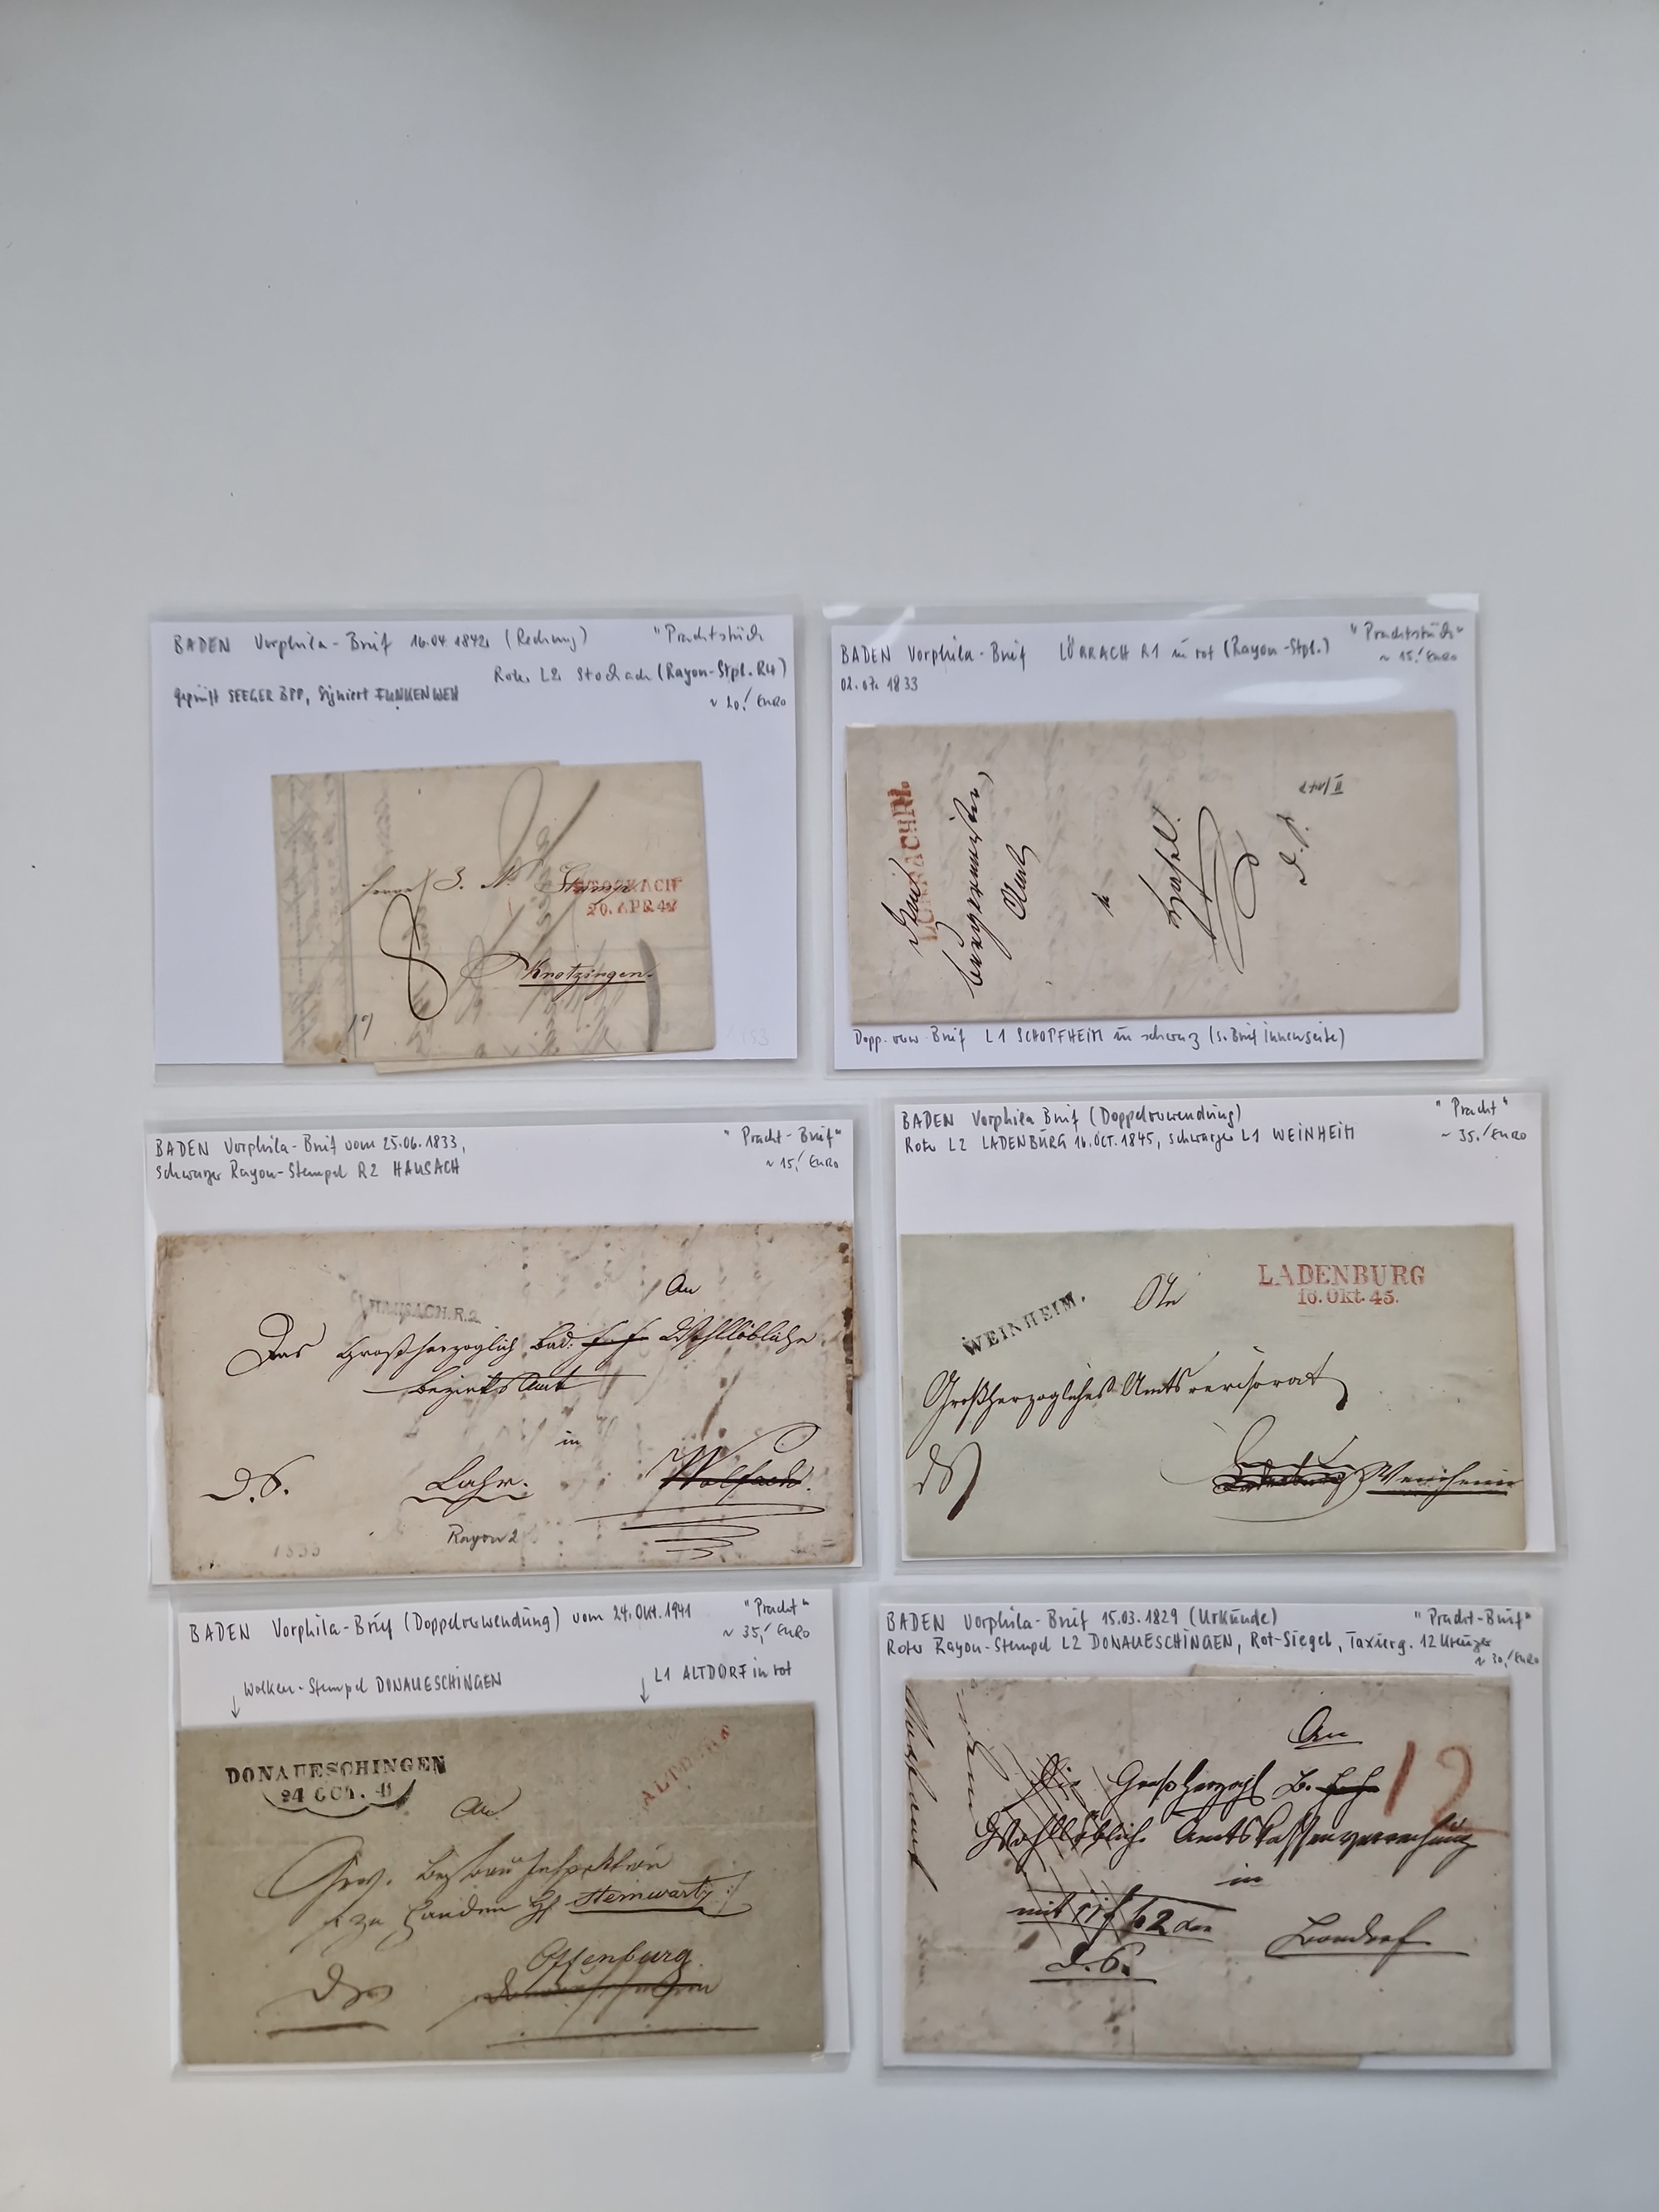 BADEN Vorphila-Brief 16.04.1842 (Rechnung) "Prachtstück
Roter L2 Stockach (Rayon-Stpl. R4)
geprüft SEEGER BPP, Signiert FUNKENWEH
~ 20,- EURO
Herrn J. N. Stump
STOCKACH
20. APR. 42
8
Krotzingen.
BADEN Vorphila-Brief LÖRRACH R1 in rot (Rayon-Stpl.) "Prachtstück"
~ 15,- EURO
02.07.1833
LÖRRACH R1.
Bürgermeister
Amt
Hasel.
d. S.
Dopp. verw. Brief L1 SCHOPFHEIM in schwarz (s. Brief innenseite)
BADEN Vorphila-Brief vom 25.06.1833, "Pracht-Brief"
schwarzer Rayon-Stempel R2 HAUSACH ~ 15,- EURO
HAUSACH.R.2.
An
Das Großherzoglich Bad. Wohllöbliche
Bezirks Amt
in
D.S. Lahr. Wolfach.
Rayon 2
1833
BADEN Vorphila Brief (Doppelverwendung) "Pracht"
Roter L2 LADENBURG 16.OCT.1845, schwarzer L1 WEINHEIM ~ 35,- EURO
LADENBURG
16. Okt. 45.
WEINHEIM.
An
Großherzogliches Amtsrevisorat
DS
Ladenburg Weinheim
BADEN Vorphila-Brief (Doppelverwendung) vom 24.Okt.1941 "Pracht"
~ 35,- EURO
Wolken-Stempel DONAUESCHINGEN
L1 ALTDORF in rot
DONAUESCHINGEN
24 OCT. 41
ALTDORF
An
Gros. Bezbau Inspektion
zu Handen H. Steinwarz
Offenburg
BADEN Vorphila-Brief 15.03.1829 (Urkunde) "Pracht-Brief"
Roter Rayon-Stempel L2 DONAUESCHINGEN, Rot-Siegel, Taxierg. 12 Kreuzer
~ 30,- EURO
An
Die Großherzogl. B.
Wohllöbliche Amtskassenverrechnung
12
in
Bondorf
d. S.